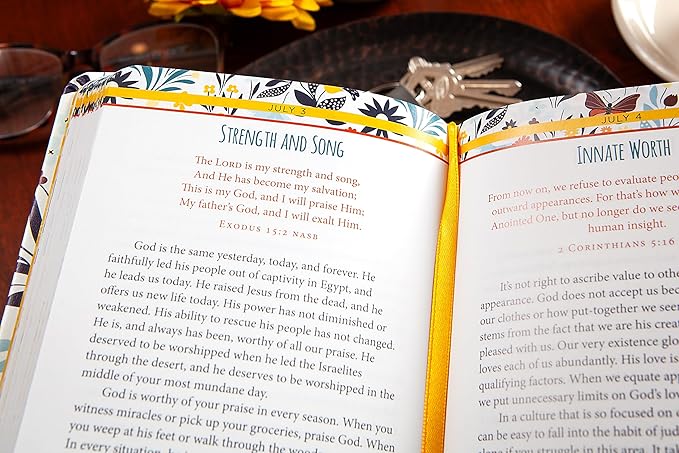 JULY 3
STRENGTH AND SONG
The LORD is my strength and song,
And He has become my salvation;
This is my God, and I will praise Him;
My father's God, and I will exalt Him.
EXODUS 15:2 NASB
God is the same yesterday, today, and forever. He
faithfully led his people out of captivity in Egypt, and
he leads us today. He raised Jesus from the dead, and he
offers us new life today. His power has not diminished or
weakened. His ability to rescue his people has not changed.
He is, and always has been, worthy of all our praise. He
deserved to be worshipped when he led the Israelites
through the desert, and he deserves to be worshipped in the
middle of your most mundane day.
God is worthy of your praise in every season. When you
witness miracles or pick up your groceries, praise God. When
you weep at his feet or walk through the
In every situation,
JULY 4
INNATE WORTH
From now on, we refuse to evaluate
outward appearances. For that's how
Anointed One, but no longer do we see
human insight.
2 CORINTHIANS 5:16
It's not right to ascribe value to
appearance. God does not accept us
our clothes or how put-together we
stems from the fact that we are his
pleased with us. Our very existence
loves each of us abundantly. His love is
qualifying factors. When we equate
we put unnecessary limits on God's
In a culture that is so focused on
can be easy to fall into the habit of
if you struggle in this area. It